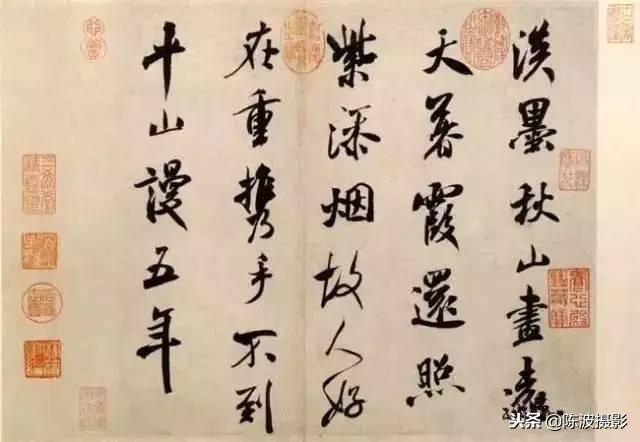 淡墨秋山畫遠
天暮霞還照
紫添烟故人好
在重攜手不到
平山謾五年
头条 @陈波摄影